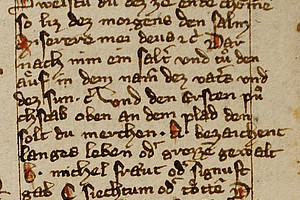 du dez ze ende chome
so liz dez morgens den salm
miserere mei deus ꝛc Dar
nach nim ein salt' vnd tu den
auf in dem nam dez vat's vnd
dez sun ꝛc vnd den ersten pu
chstab oben an dem plad den
solt du merchen. A bezaichent
langes leben od' grozze gewalt
B. michel fraut od' signuft
gab C siechtum od' tötte D